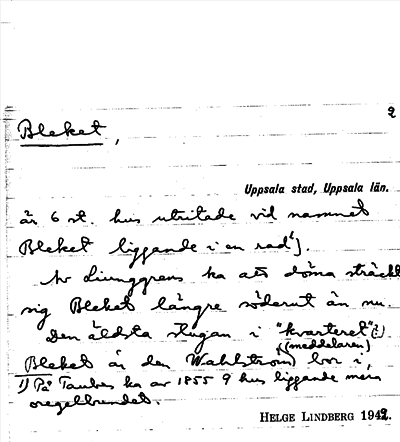 2
Bleket,
Uppsala stad, Uppsala län.
är 6 st. hus utritade vid namnet
Bleket liggande i en rad¹).
Av Ljunggrens ka att döma sträckt
sig Bleket längre söderut än nu.
Den äldsta stugan i "kvarteret" (?)
(meddelaren)
Bleket är den Wahlström bor i,
1) På Taubes ka av 1855 9 hus liggande mera
oregelbundet.
HELGE LINDBERG 1942.